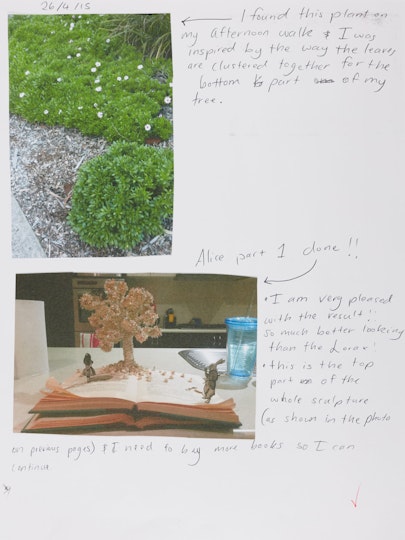 26/4/15
I found this plant on
my afternoon walk & I was
inspired by the way the leaves
are clustered together for the
bottom part of my
tree.
Alice part 1 done!!
• I am very pleased
with the result!
so much better looking
than the Lorax!
• this is the top
part of the
whole sculpture
(as shown in the photo
on previous pages) & I need to buy more books so I can
continue.